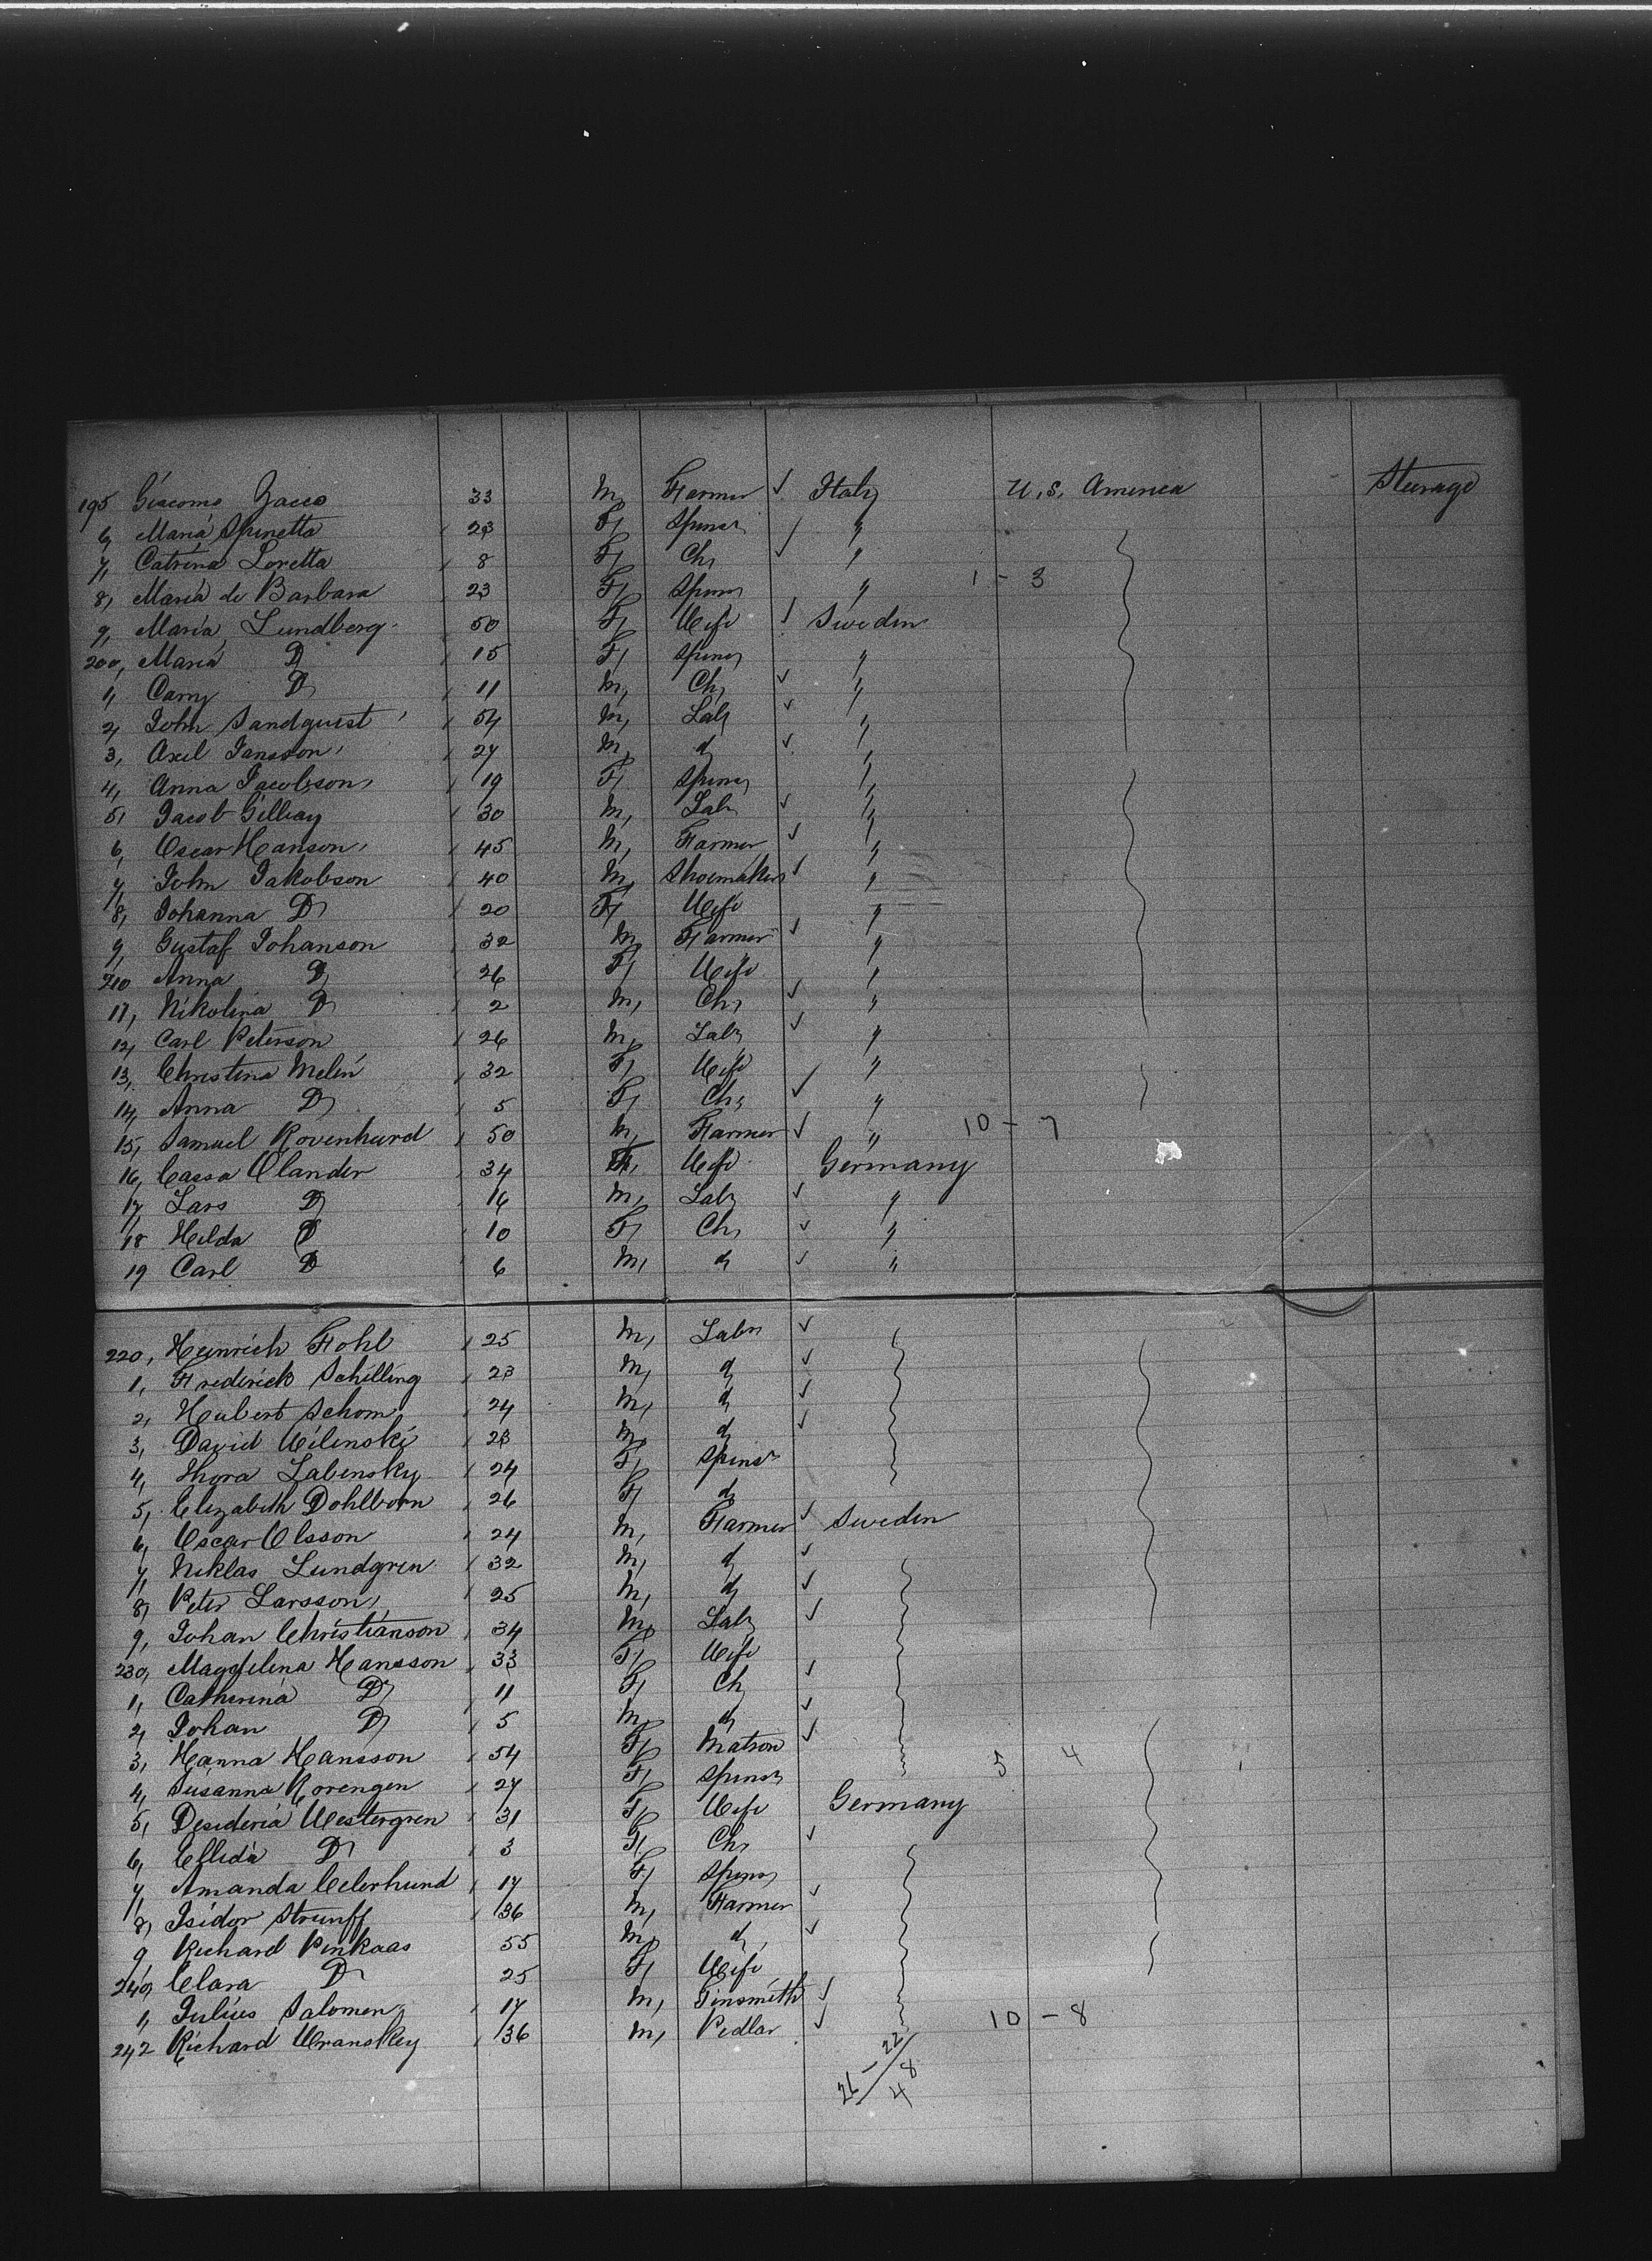 195 Giacomo Zacco 33 M, Farmer ✓ Italy U.S. America Steerage
6, Maria Spinetta 23 F, Spinsr / "
7, Catrina Loretta 8 F, Ch, ✓ "
8, Maria de Barbara 23 F, Spinsr " 1 - 3
9, Maria Lundberg 50 F, Wife Sweden
200, Maria D, 15 F, Spinsr "
1, Carry D, 11 M, Ch, ✓ "
2, John Sandquist 54 M, Labr ✓ "
3, Axel Jansson 27 M, d, ✓ "
4, Anna Jacobsson 19 F, Spinsr "
5, Jacob 30 M, Labr ✓ "
6, Oscar Hanson 45 M, Farmer ✓ "
7, John Jakobson 40 M, Shoemaker ✓ "
8, Johanna D, 20 F, Wife "
9, Gustaf Johanson 32 M, Farmer ✓ "
210 Anna D, 26 F, Wife "
11, Nikolina D, 2 M, Ch, ✓ "
12, Carl Peterson 26 M, Labr ✓ "
13, Christina Melin 32 F, Wife "
14, Anna D, 5 F, Ch, ✓ "
15, Samuel Rovenhurd 50 M, Farmer ✓ " 10 - 7
16, Cassa Olander 34 F, Wife Germany
17, Lars D, 16 M, Labr ✓ "
18 Hilda D, 10 F, Ch, ✓ "
19 Carl D, 6 M, d, ✓ "
220, Heinrich Fohl 25 M, Labr ✓
1, Frederick Schilling 23 M, d, ✓
2, Hubert Schom 24 M, d, ✓
3, David Wilenski 23 M, d, ✓
4, Thora Labensky 24 F, Spinsr
5, Elizabeth Dohlborn 26 F, d,
6, Oscar Olsson 24 M, Farmer ✓ Sweden
7, Niklas Lundgren 32 M, d, ✓
8, Peter Larsson 25 M, d, ✓
9, Johan Christianson 34 M, Labr ✓
230, Magdelena Hansson 33 F, Wife
1, Catherina D, 11 F, Ch, ✓
2, Johan D, 5 M, d, ✓
3, Hanna Hansson 54 F, Matron ✓
4, Susanna Rorengen 27 F, Spinsr 5 4
5, Desideria Westergren 31 F, Wife Germany
6, Ellida D, 3 F, Ch, ✓
7, Amanda Celerhund 17 F, Spinsr
8, Isidor Strunff 36 M, Farmer ✓
9 Richard Pinkaas 55 M, d, ✓
240, Clara D, 25 F, Wife
1, Julius Salomen 17 M, Tinsmith ✓
242 Richard Wranskey 36 M, Pedlar ✓ 10 - 8
26 - 22
48